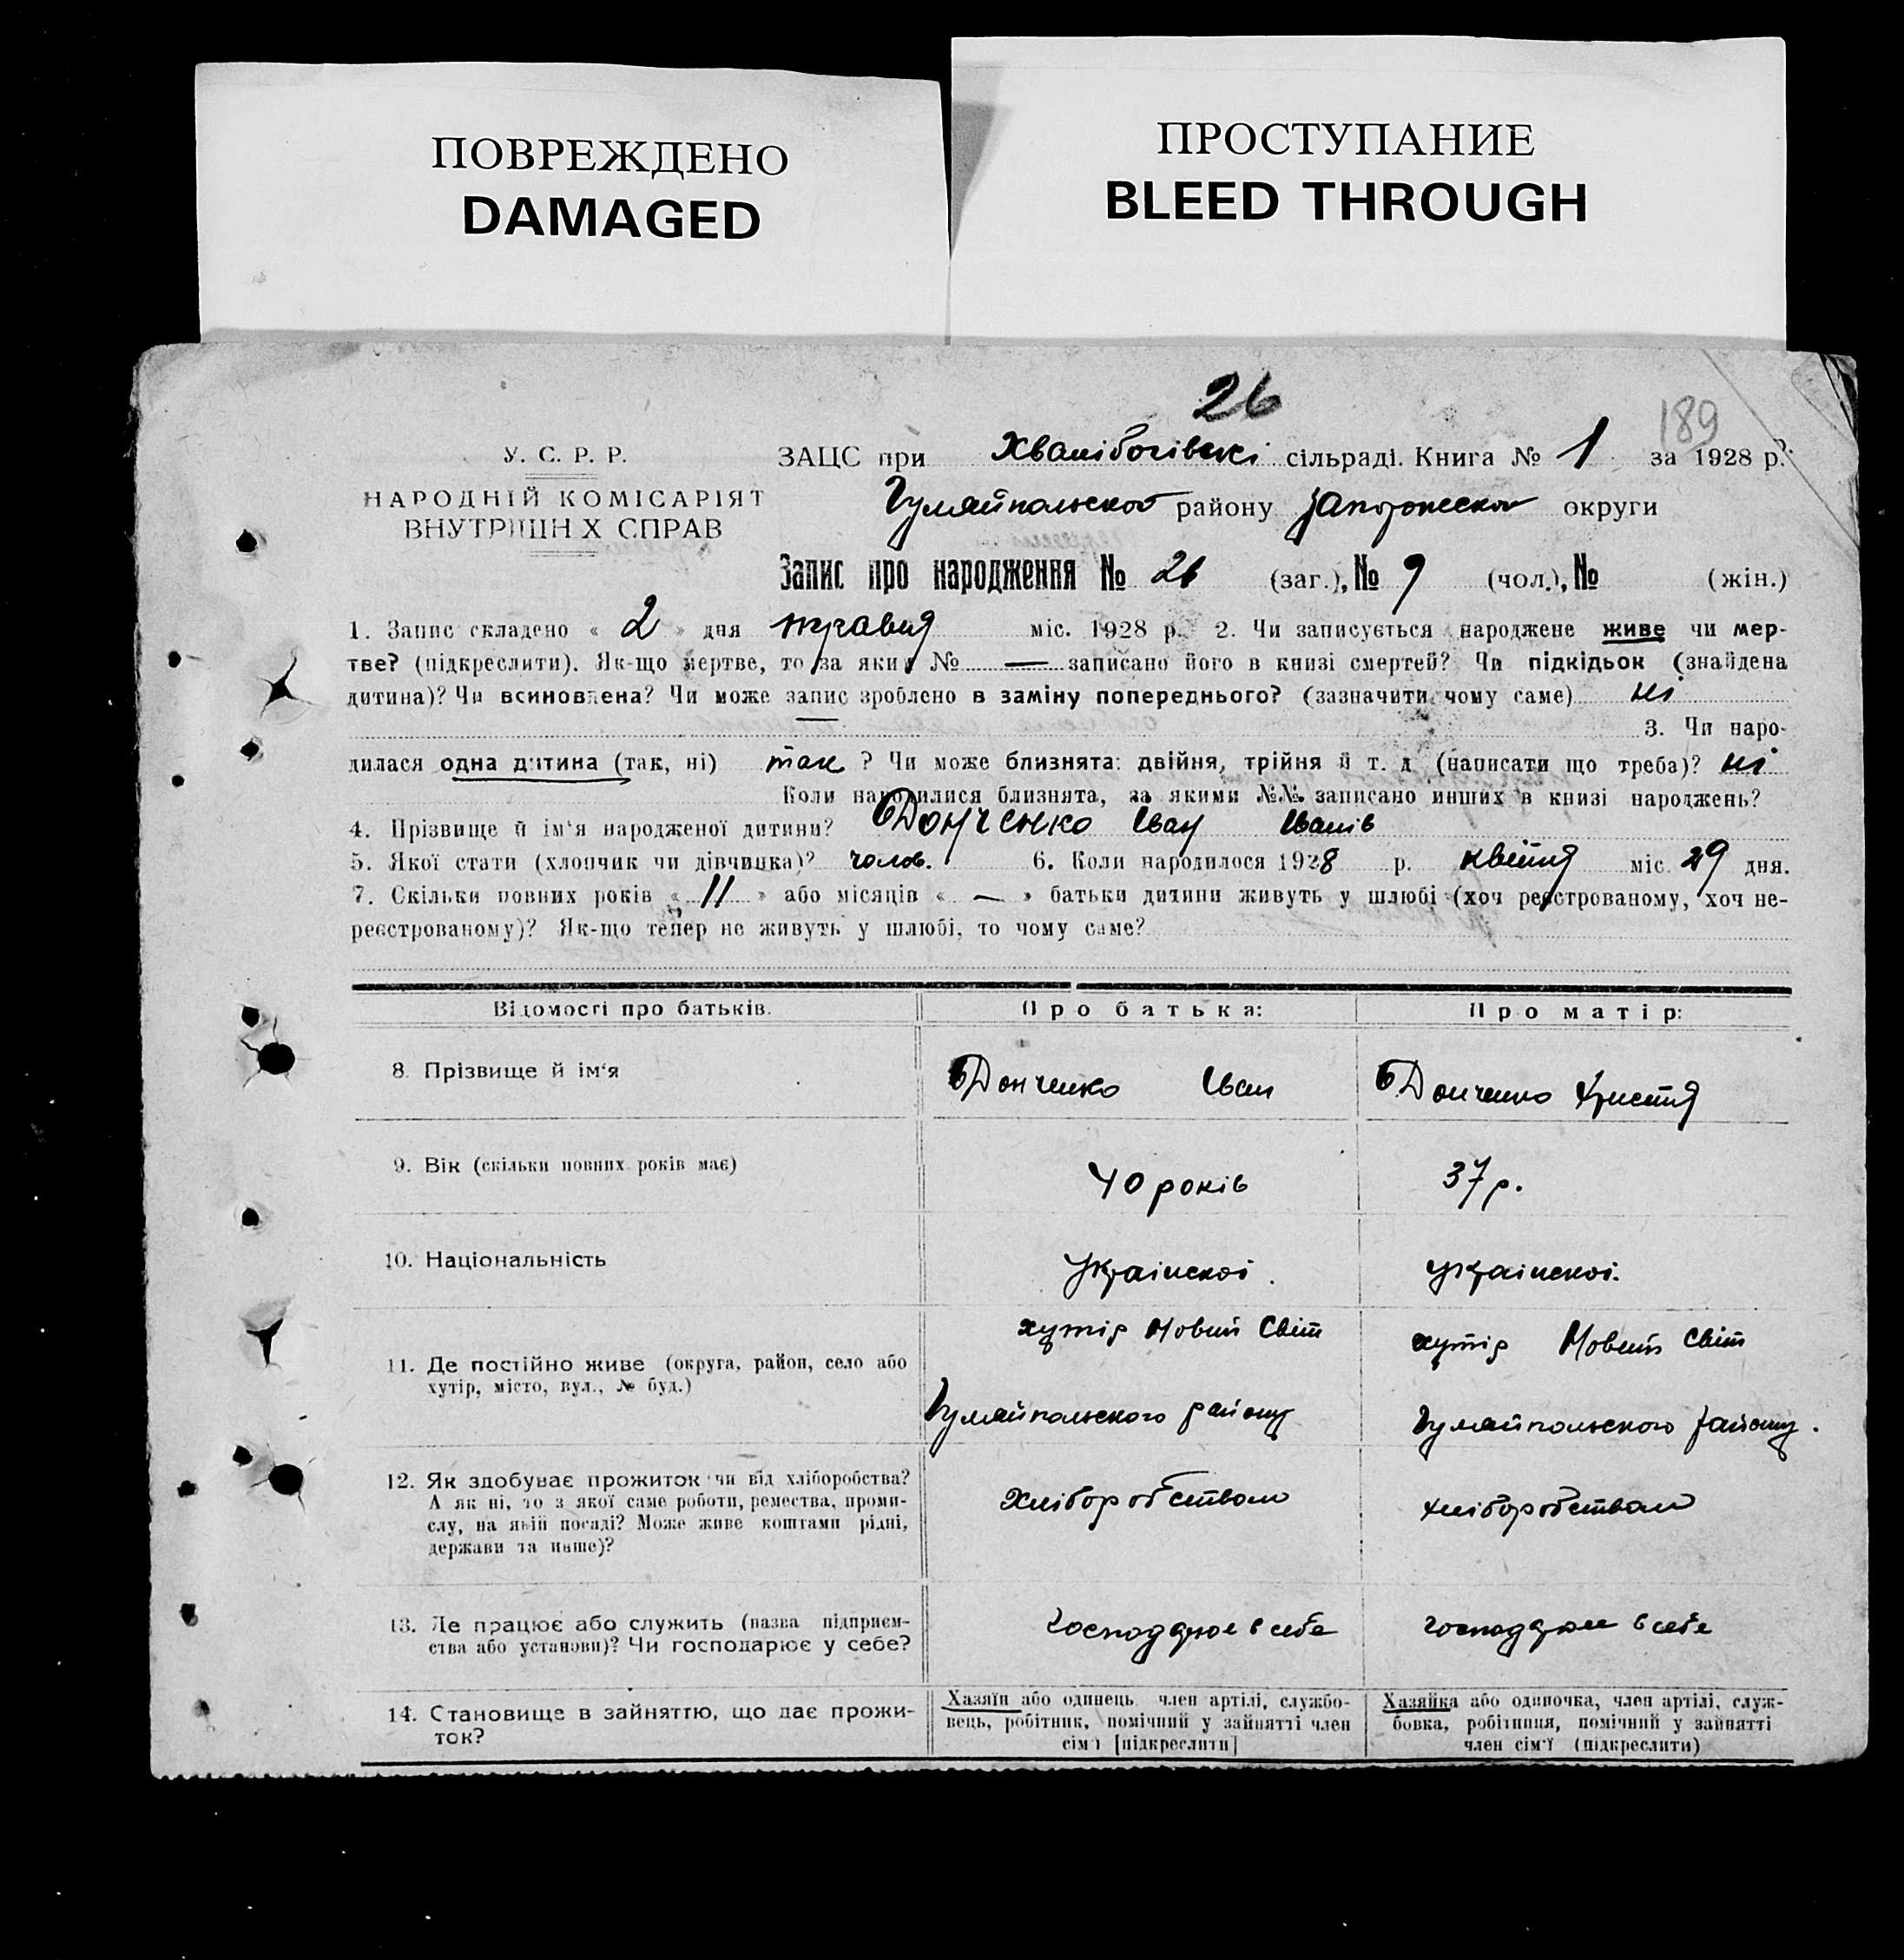 ПОВРЕЖДЕНО
DAMAGED
ПРОСТУПАНИЕ
BLEED THROUGH
26
189
У. С. Р. Р.
НАРОДНІЙ КОМІСАРІЯТ
ВНУТРІШНІХ СПРАВ
ЗАЦС при Хвалібогівскі сільраді. Книга № 1 за 1928 р.
Гуляйпольскої району Запорожскої округи
Запис про народження № 26 (заг.), № 9 (чол.), № (жін.)
1. Запис складено « 2 » дня травня міс. 1928 р. 2. Чи записується народжене живе чи мер-
тве? (підкреслити). Як-що мертве, то за яким № — записано його в книзі смертей? Чи підкідьок (знайдена
дитина)? Чи всиновлена? Чи може запис зроблено в заміну попереднього? (зазначити чому саме) ні
— 3. Чи наро-
дилася одна дитина (так, ні) так ? Чи може близнята: двійня, трійня й т. д. (написати що треба)? ні
Коли народилися близнята, за якими №№ записано инших в книзі народжень?
4. Прізвище й ім'я народженої дитини? Донченко Іван Іванів
5. Якої стати (хлопчик чи дівчинка)? чолов. 6. Коли народилося 1928 р. квітня міс. 29 дня.
7. Скільки повних років « 11 » або місяців « — » батьки дитини живуть у шлюбі (хоч реєстрованому, хоч не-
реєстрованому)? Як-що тепер не живуть у шлюбі, то чому саме?
Відомості про батьків. Про батька: Про матір:
8. Прізвище й ім'я Донченко Іван Донченко Христя
9. Вік (скільки повних років має) 40 років 37 р.
10. Національність Українскої. українскої.
хутір Новий Світ хутір Новий Світ
11. Де постійно живе (округа, район, село або
хутір, місто, вул., № буд.)
Гуляйпольского району Гуляйпольского району.
12. Як здобуває прожиток чи від хліборобства?
А як ні, то з якої саме роботи, ремества, проми-
слу, на якій посаді? Може живе коштами рідні,
держави та инше)?
Хліборобством хліборобством
13. Де працює або служить (назва підприєм-
ства або установи)? Чи господарює у себе?
господарює в себе господарює в себе
14. Становище в зайняттю, що дає прожи-
ток?
Хазяїн або одинець, член артілі, службо-
вець, робітник, помічний у зайнятті член
сім'ї [підкреслити]
Хазяйка або одиночка, член артілі, служ-
бовка, робітниця, помічний у зайнятті
член сім'ї (підкреслити)